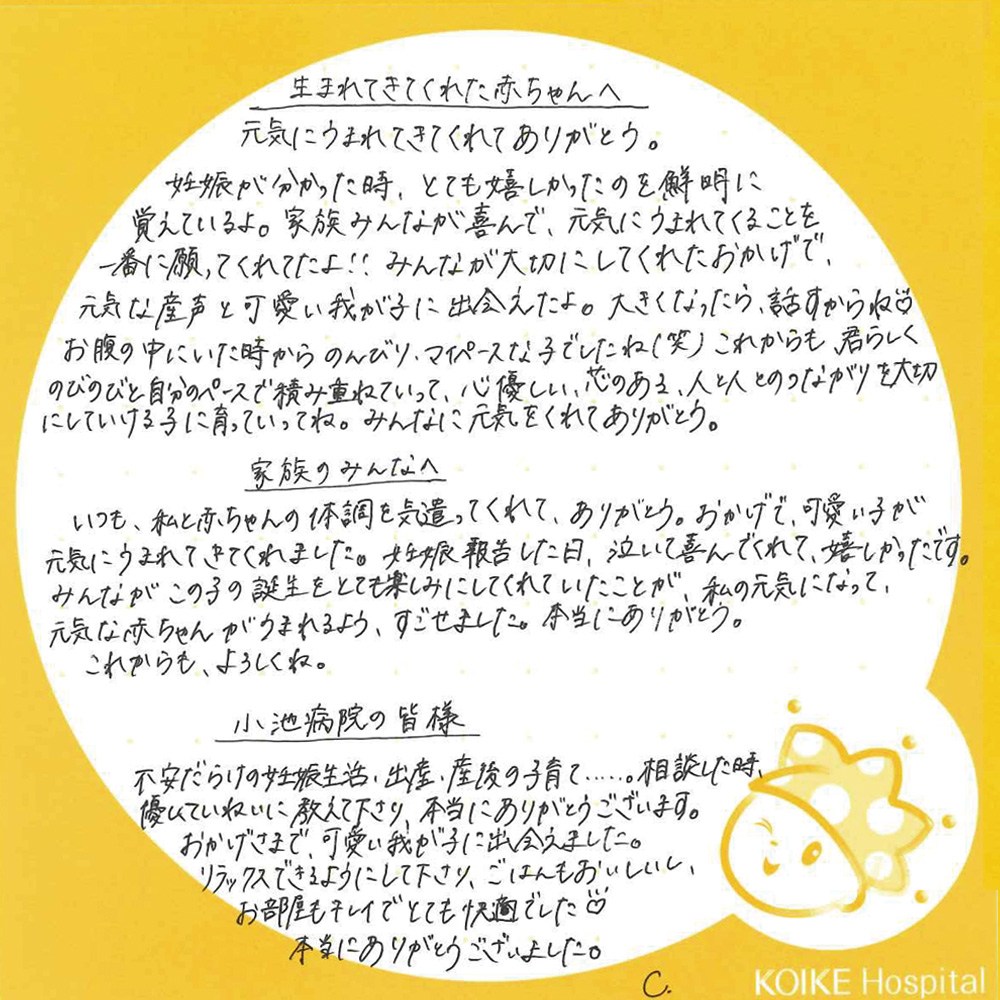 生まれてきてくれた赤ちゃんへ
元気にうまれてきてくれてありがとう。
妊娠が分かった時、とても嬉しかったのを鮮明に
覚えているよ。家族みんなが喜んで、元気にうまれてくることを
一番に願ってくれてたよ!! みんなが大切にしてくれたおかげで、
元気な産声と可愛い我が子に出会えたよ。大きくなったら、話すからね♡
お腹の中にいた時からのんびり、マイペースな子でしたね(笑) これからも、君らしく
のびのびと自分のペースで積み重ねていって、心優しい、芯のある、人と人とのつながりを大切
にしていける子に育っていってね。みんなに元気をくれてありがとう。
家族のみんなへ
いつも、私と赤ちゃんの体調を気遣ってくれて、ありがとう。おかげで、可愛い子が
元気にうまれてきてくれました。妊娠報告した日、泣いて喜んでくれて、嬉しかったです。
みんながこの子の誕生をとても楽しみにしてくれていたことが、私の元気になって、
元気な赤ちゃんがうまれるよう、すごせました。本当にありがとう。
これからも、よろしくね。
小池病院の皆様
不安だらけの妊娠生活・出産・産後の子育て……。相談した時、
優しくていねいに教えて下さり、本当にありがとうございます。
おかげさまで、可愛い我が子に出会えました。
リラックスできるようにして下さり、ごはんもおいしいし、
お部屋もキレイでとても快適でした♡
本当にありがとうございました。
C.
KOIKE Hospital